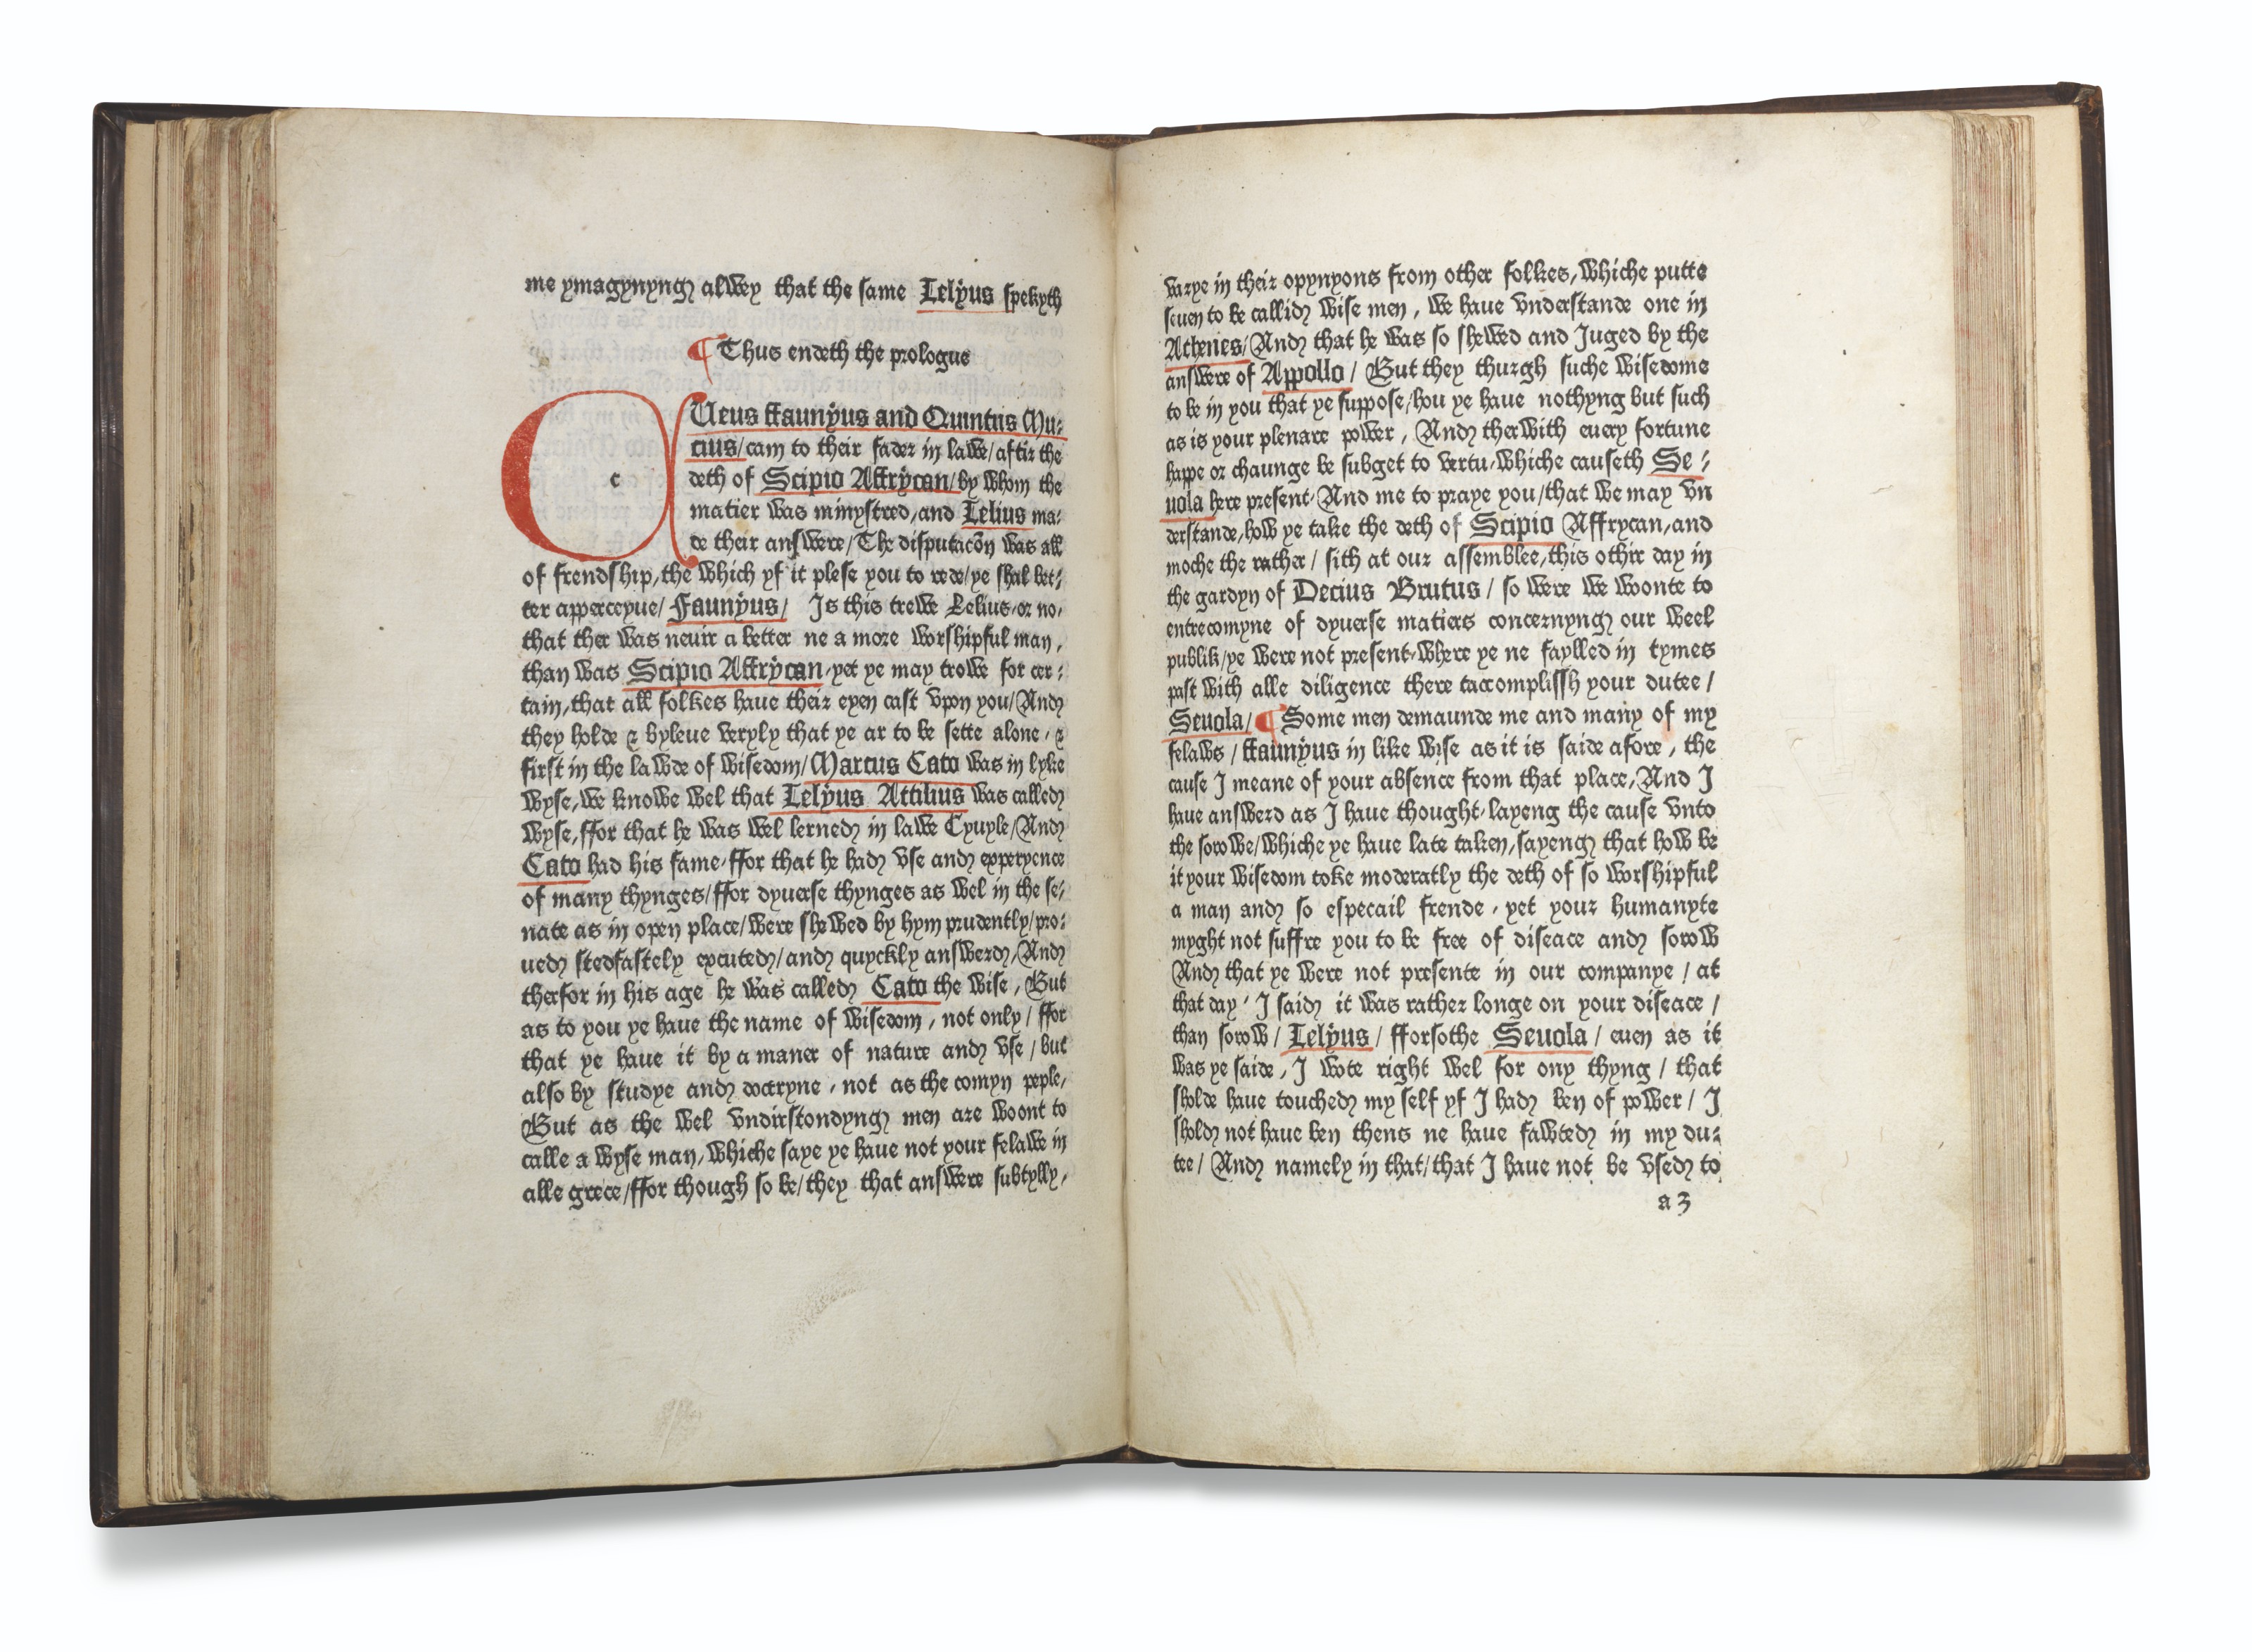 me ymagynyng alwey that the same Lelyus spekyth
¶ Thus endeth the prologue
C
c
Ueus ffaunyus and Quintus Mu⸗
cius/cam to their fader in lawe/aftir the
deth of Scipio Affrycan/by whom the
matier was mynystred, and Lelius ma⸗
de their answere/The disputacōn was all
of frendship, the which yf it plese you to rede/ye shal bet⸗
ter apperceyue/ Faunyus/ Is this trewe Lelius, or no,
that ther was neuir a better ne a more worshipful man,
than was Scipio Affrycan, yet ye may trowe for cer⸗
tain, that all folkes haue their eyen cast vpon you/And
they holde & byleue veryly that ye ar to be sette alone, &
first in the lawde of wisedom/Marcus Cato was in lyke
wyse, we knowe wel that Lelyus Attilius was called
wyse, ffor that he was wel lerned in lawe Cyuyle/And
Cato had his fame, ffor that he had vse and experyence
of many thynges/ffor dyuerse thynges as wel in the se⸗
nate as in open place/were shewed by hym prudently/pro⸗
ued stedfastely excuted/and quyckly answerd, And
therfor in his age he was called Cato the wise, But
as to you ye haue the name of wisedom, not only/ ffor
that ye haue it by a maner of nature and vse/but
also by studye and doctryne, not as the comyn peple,
But as the wel vndirstondyng men are woont to
calle a wyse man, whiche saye ye haue not your felawe in
alle grece/ffor though so be/they that answere subtylly,
varye in their opynyons from other folkes, whiche putte
seuen to be callid wise men, we haue vnderstande one in
Athenes/And that he was so shewed and Juged by the
answere of Appollo/ But they thurgh suche wisedome
to be in you that ye suppose/hou ye haue nothyng but such
as is your plenare power, And therwith euery fortune
happe or chaunge be subget to vertu, whiche causeth Se⸗
uola here present, And me to praye you/that we may vn
derstande, how ye take the deth of Scipio Affrycan, and
moche the rather/ sith at our assemblee, this othir day in
the gardyn of Decius Brutus/ so were we woonte to
entrecomyne of dyuerse matiers concernyng our weel
publik/ye were not present, where ye ne faylled in tymes
past with alle diligence there taccomplissh your dutee/
Seuola/ ¶ Some men demaunde me and many of my
felaws/ ffaunyus in like wise as it is saide afore, the
cause I meane of your absence from that place, And I
haue answerd as I haue thought, layeng the cause vnto
the sorowe/whiche ye haue late taken, sayeng that how be
it your wisedom toke moderatly the deth of so worshipful
a man and so especail frende, yet your humanyte
myght not suffre you to be free of diseace and sorow
And that ye were not presente in our companye/ at
that day, I said it was rather longe on your diseace/
than sorow/ Lelyus/ fforsothe Seuola/ euen as it
was ye saide, I wote right wel for ony thyng/ that
sholde haue touched my self yf I had ben of power/ I
shold not haue ben thens ne haue fawted in my du⸗
tee/ And namely in that/that I haue not be vsed to
a 3